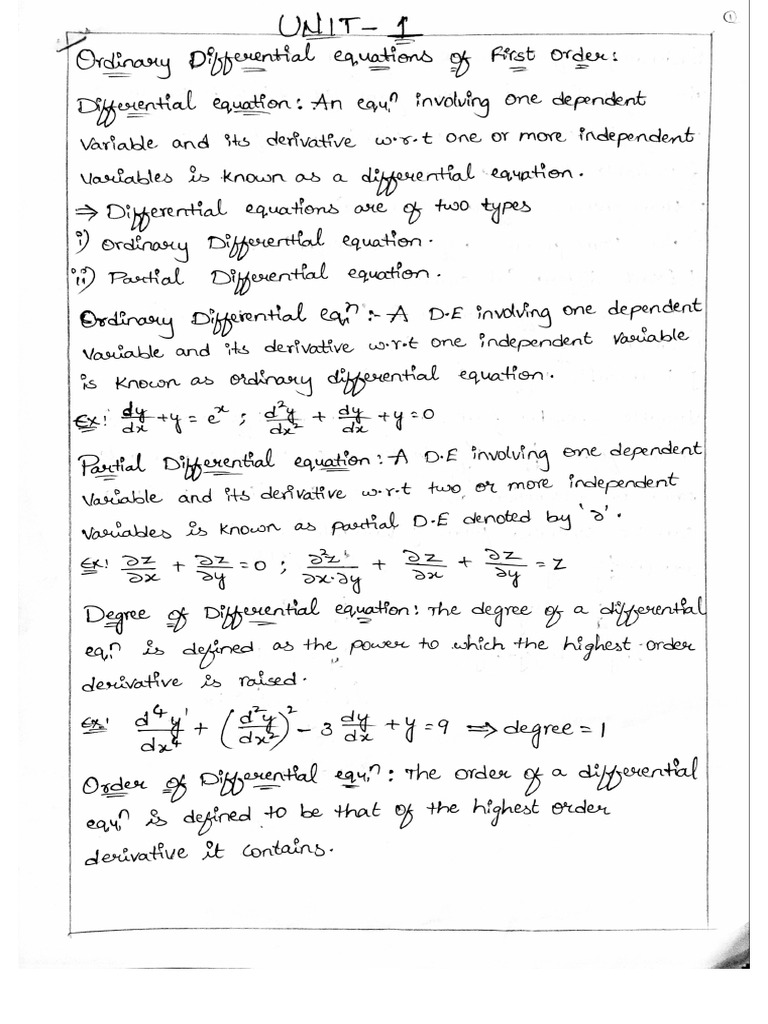 ①
UNIT - 1
Ordinary Differential equations of First Order:
Differential equation: An equⁿ involving one dependent
variable and its derivative w.r.t one or more independent
variables is known as a differential equation.
⇒ Differential equations are of two types
i) Ordinary Differential equation.
ii) Partial Differential equation.
Ordinary Differential Eqⁿ :- A D.E involving one dependent
variable and its derivative w.r.t one independent variable
is known as ordinary differential equation.
Ex: dy/dx + y = eˣ ; d²y/dx² + dy/dx + y = 0
Partial Differential equation: A D.E involving one dependent
variable and its derivative w.r.t two or more independent
variables is known as partial D.E denoted by '∂'.
Ex: ∂z/∂x + ∂z/∂y = 0 ; ∂²z/∂x·∂y + ∂z/∂x + ∂z/∂y = z
Degree of Differential equation: The degree of a differential
eqⁿ is defined as the power to which the highest order
derivative is raised.
Ex: d⁴y/dx⁴ ¹ + (d²y/dx²)² - 3 dy/dx + y = 9 ⇒ degree = 1
Order of Differential equⁿ: The order of a differential
equⁿ is defined to be that of the highest order
derivative it contains.